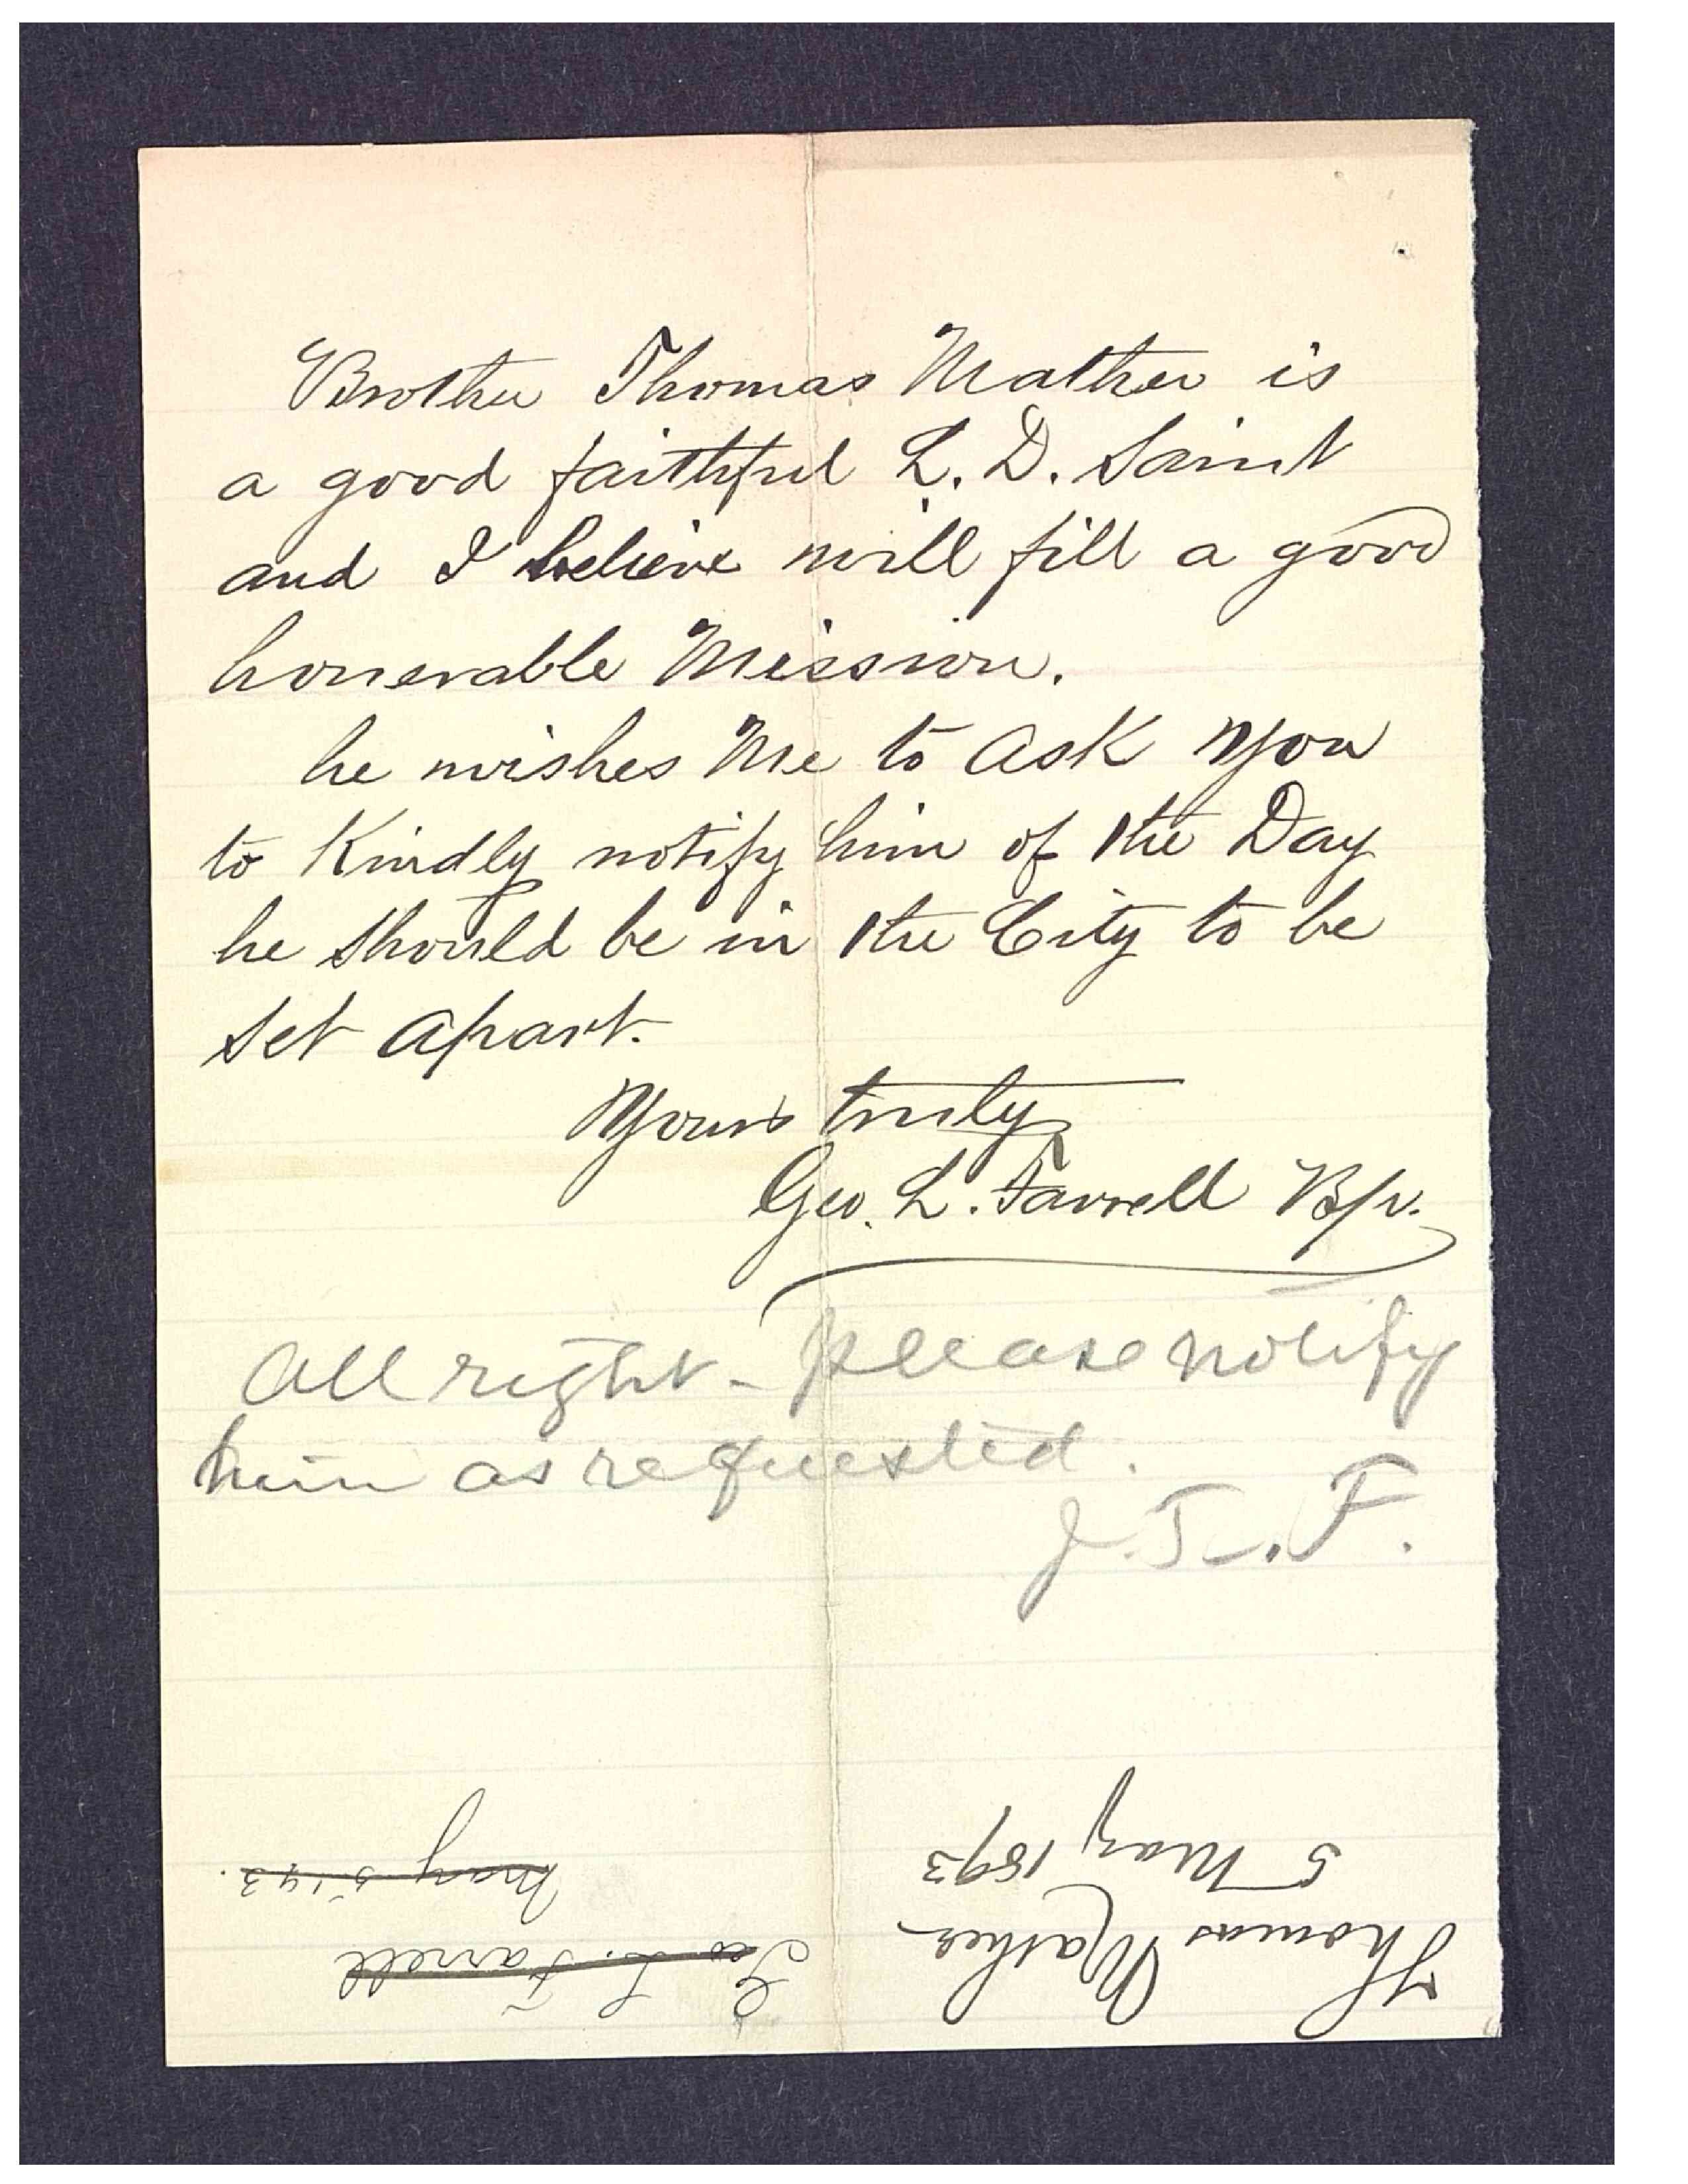 Brother Thomas Mather is
a good faithful L. D. Saint
and I believe will fill a good
honerable Mission.
he wishes Me to Ask You
to Kindly notify him of the Day
he should be in the City to be
set Apart.
Yours truly
Geo. L. Farrell Bp.
All right - please notify
him as requested.
J. F. S.
Thomas Mather
5 May 1893
Geo L. Farrell
May 5 '93.